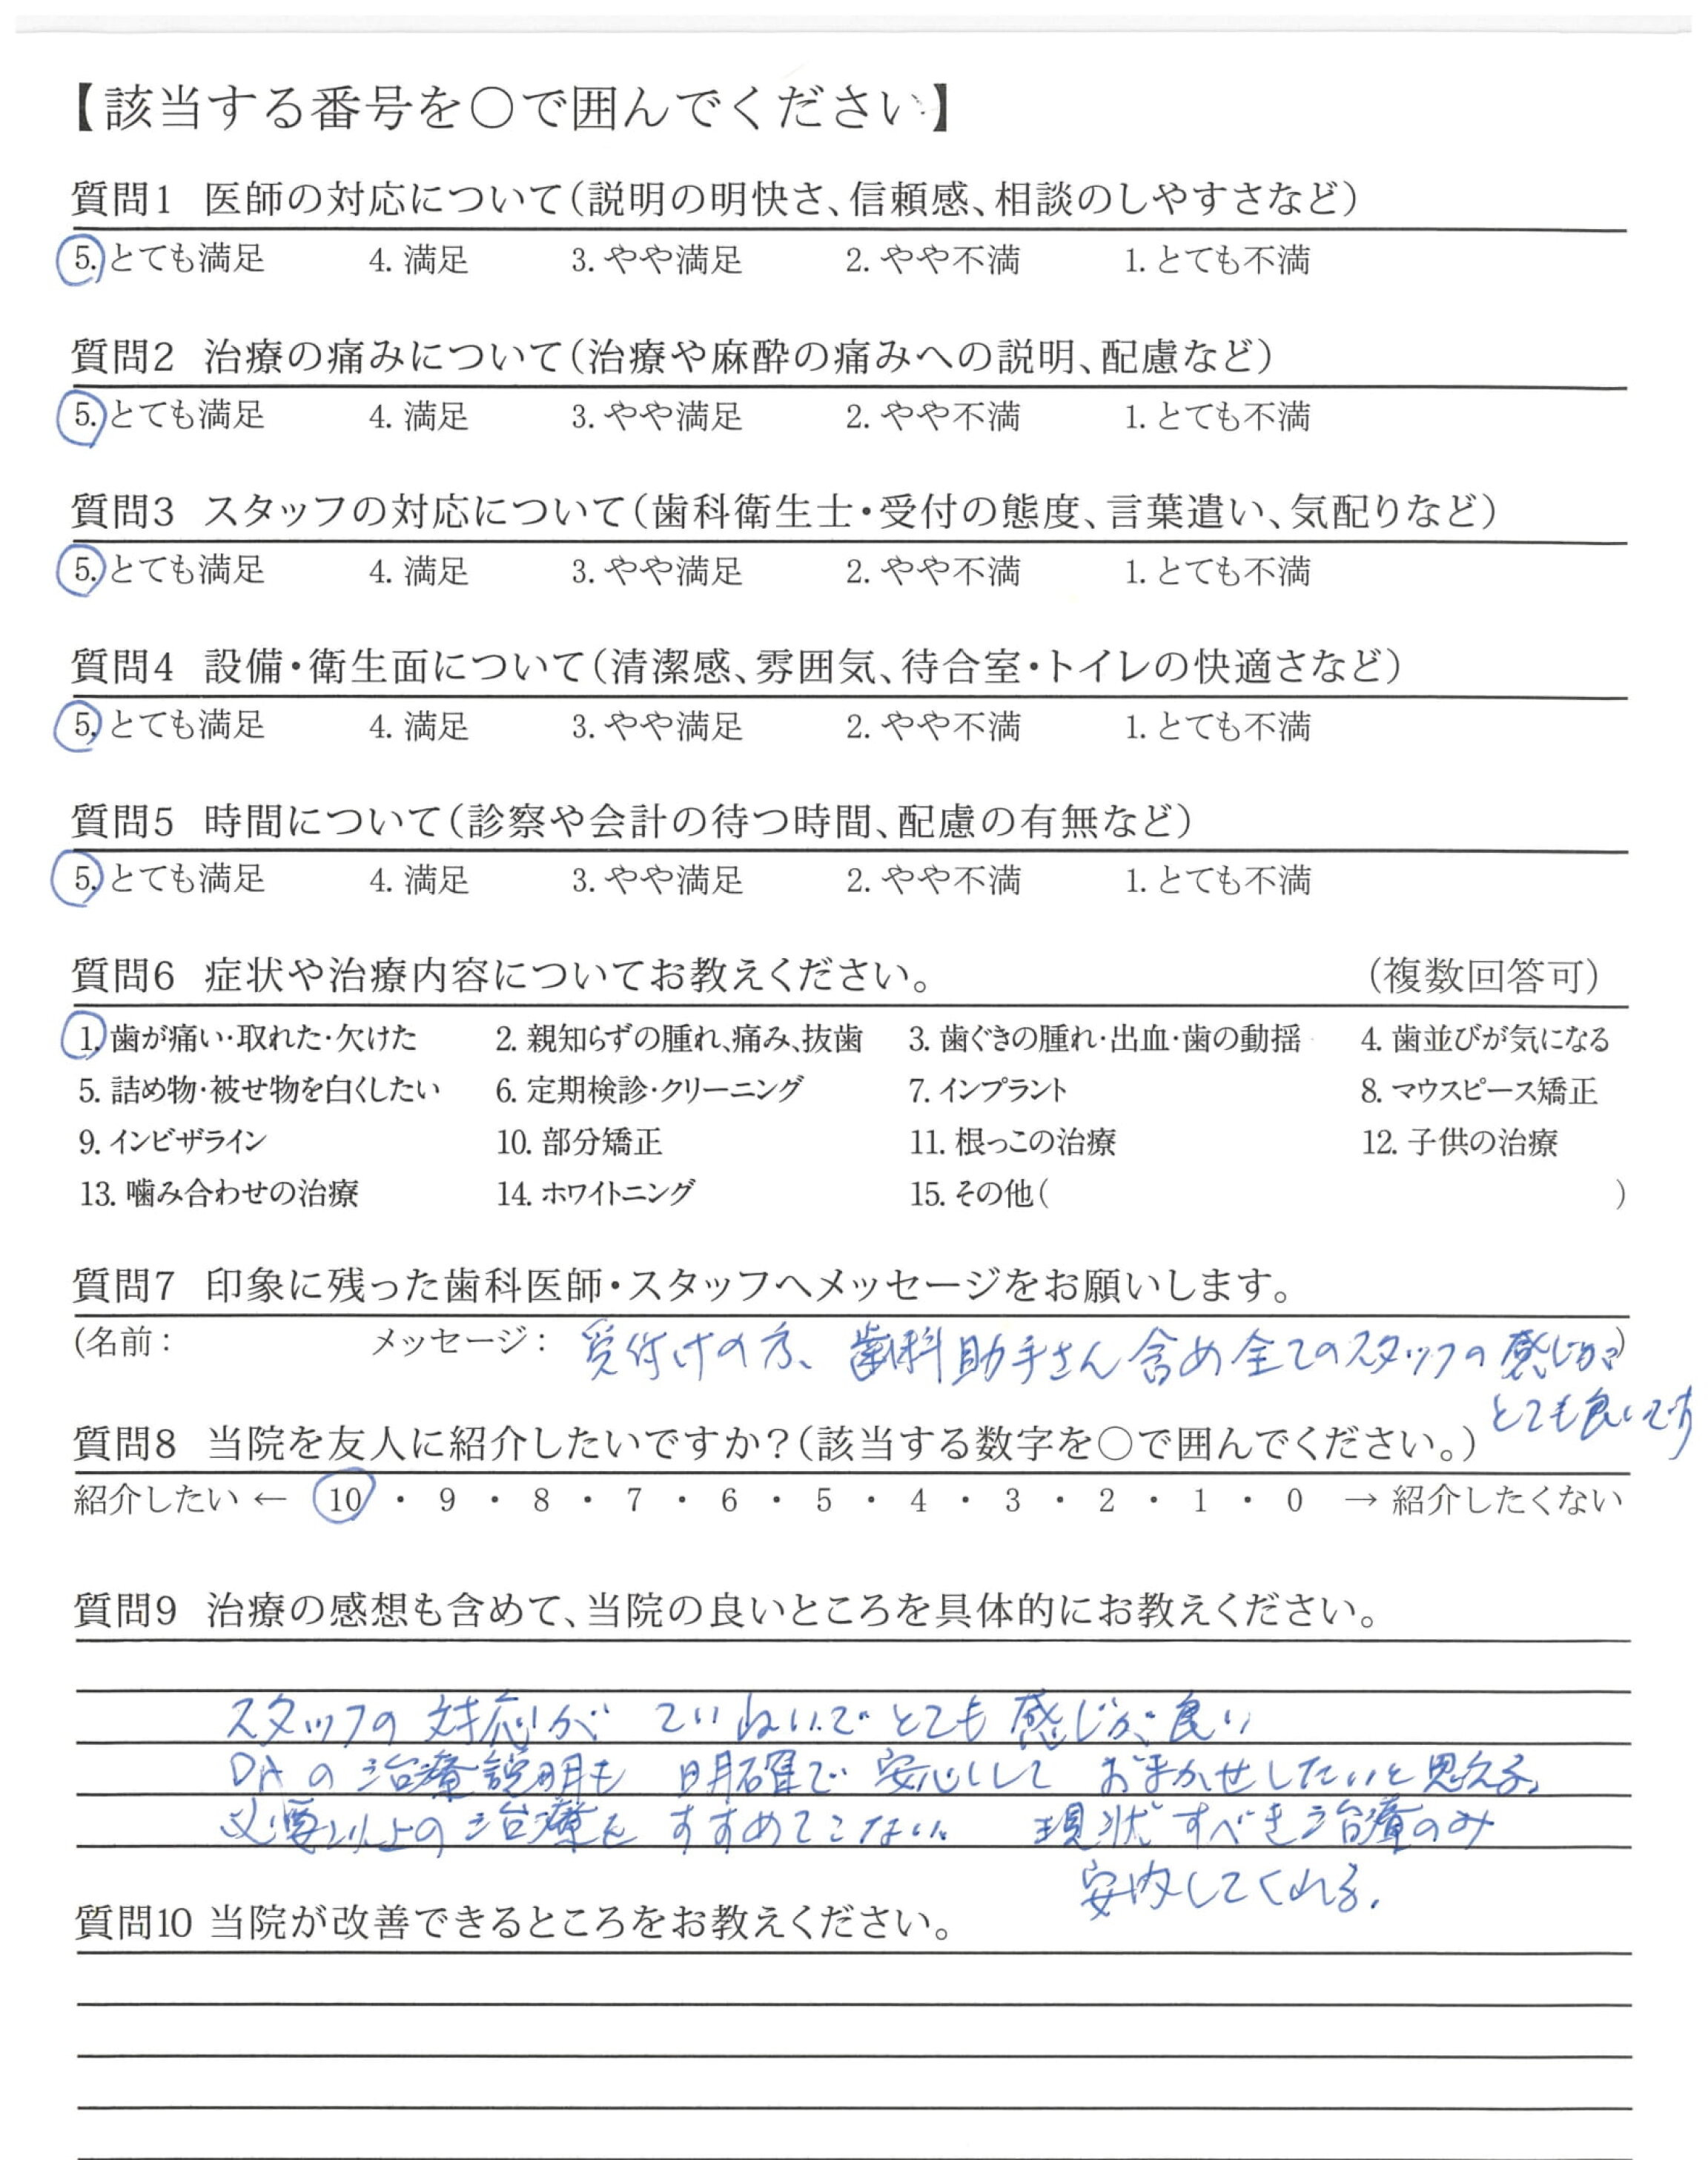 【該当する番号を○で囲んでください】
質問1 医師の対応について(説明の明快さ、信頼感、相談のしやすさなど)
5. とても満足 4. 満足 3. やや満足 2. やや不満 1. とても不満
質問2 治療の痛みについて(治療や麻酔の痛みへの説明、配慮など)
5. とても満足 4. 満足 3. やや満足 2. やや不満 1. とても不満
質問3 スタッフの対応について(歯科衛生士・受付の態度、言葉遣い、気配りなど)
5. とても満足 4. 満足 3. やや満足 2. やや不満 1. とても不満
質問4 設備・衛生面について(清潔感、雰囲気、待合室・トイレの快適さなど)
5. とても満足 4. 満足 3. やや満足 2. やや不満 1. とても不満
質問5 時間について(診察や会計の待つ時間、配慮の有無など)
5. とても満足 4. 満足 3. やや満足 2. やや不満 1. とても不満
質問6 症状や治療内容についてお教えください。 (複数回答可)
1. 歯が痛い・取れた・欠けた 2. 親知らずの腫れ、痛み、抜歯 3. 歯ぐきの腫れ・出血・歯の動揺 4. 歯並びが気になる
5. 詰め物・被せ物を白くしたい 6. 定期検診・クリーニング 7. インプラント 8. マウスピース矯正
9. インビザライン 10. 部分矯正 11. 根っこの治療 12. 子供の治療
13. 噛み合わせの治療 14. ホワイトニング 15. その他( )
質問7 印象に残った歯科医師・スタッフへメッセージをお願いします。
(名前: メッセージ: 受付けの方、歯科助手さん含め全てのスタッフの感じが)
とても良いです
質問8 当院を友人に紹介したいですか?(該当する数字を○で囲んでください。)
紹介したい ← 10 ・ 9 ・ 8 ・ 7 ・ 6 ・ 5 ・ 4 ・ 3 ・ 2 ・ 1 ・ 0 → 紹介したくない
質問9 治療の感想も含めて、当院の良いところを具体的にお教えください。
スタッフの対応がていねいでとても感じが良い
の治療説明も明確で安心しておまかせしたいと思える。
必要以上の治療をすすめてこない。 現状すべき治療のみ
案内してくれる。
質問10 当院が改善できるところをお教えください。